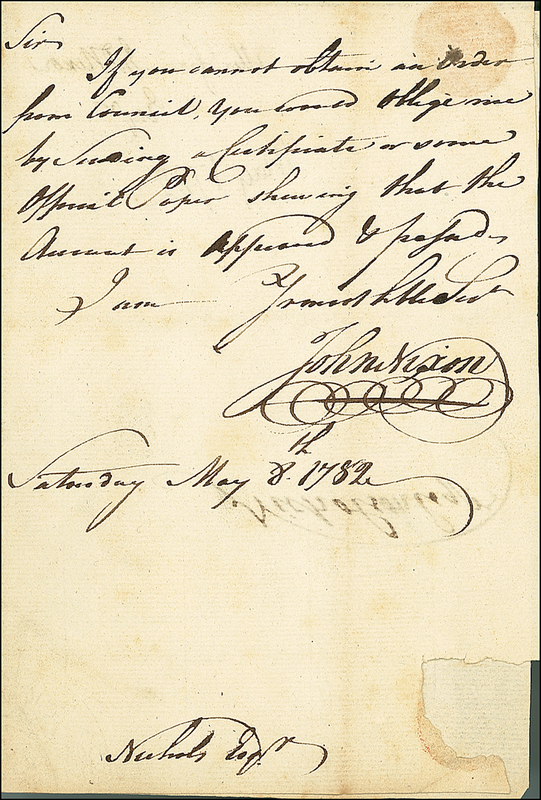 Sir
If you cannot obtain an Order
from Council, you would Oblige me
by Sending a Certificate or some
Official Paper shewing that the
Account is Approved & passed
I am Yr most hble Sert
John Nixon
Saturday May 8th 1782
Nichols Esqr